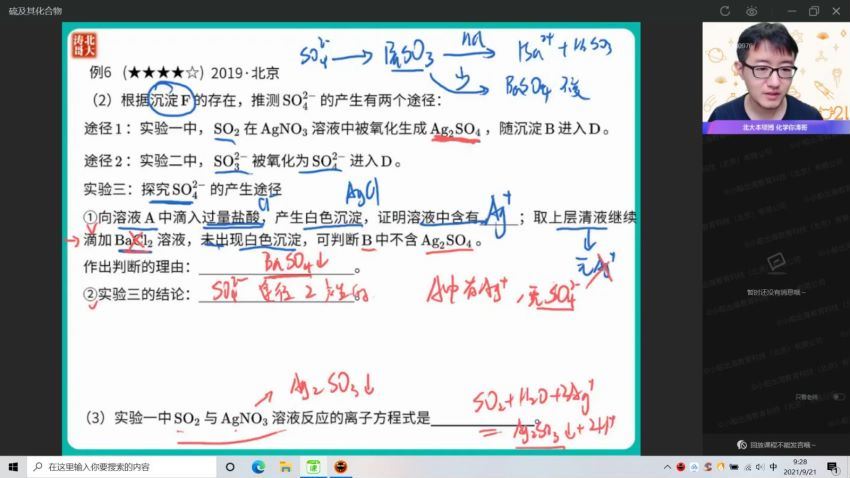 硫及其化合物
北大
涛哥
例6 (★★★★☆) 2019·北京
SO₄²⁻ → BaSO₃ → Ba²⁺ + H₂SO₃
BaSO₄
(2) 根据沉淀 F 的存在，推测 SO₄²⁻ 的产生有两个途径：
途径 1：实验一中，SO₂ 在 AgNO₃ 溶液中被氧化生成 Ag₂SO₄，随沉淀 B 进入 D。
途径 2：实验二中，SO₃²⁻ 被氧化为 SO₄²⁻ 进入 D。
实验三：探究 SO₄²⁻ 的产生途径
AgCl
Cl
①向溶液 A 中滴入过量盐酸，产生白色沉淀，证明溶液中含有 Ag⁺；取上层清液继续
滴加 BaCl₂ 溶液，未出现白色沉淀，可判断 B 中不含 Ag₂SO₄。
无Ag⁺
作出判断的理由：BaSO₄↓。
②实验三的结论：SO₄²⁻ 途径 2 产生的
A中有Ag⁺，无SO₄²⁻
Ag₂SO₃↓
(3) 实验一中 SO₂ 与 AgNO₃ 溶液反应的离子方程式是。
SO₂+H₂O+2Ag⁺
= Ag₂SO₃↓+2H⁺
北大本硕博 化学你涛哥
暂时还没有消息哦~
只看老师
回放课程不能发言哦~
在这里输入你要搜索的内容
中
9:28
2021/9/21